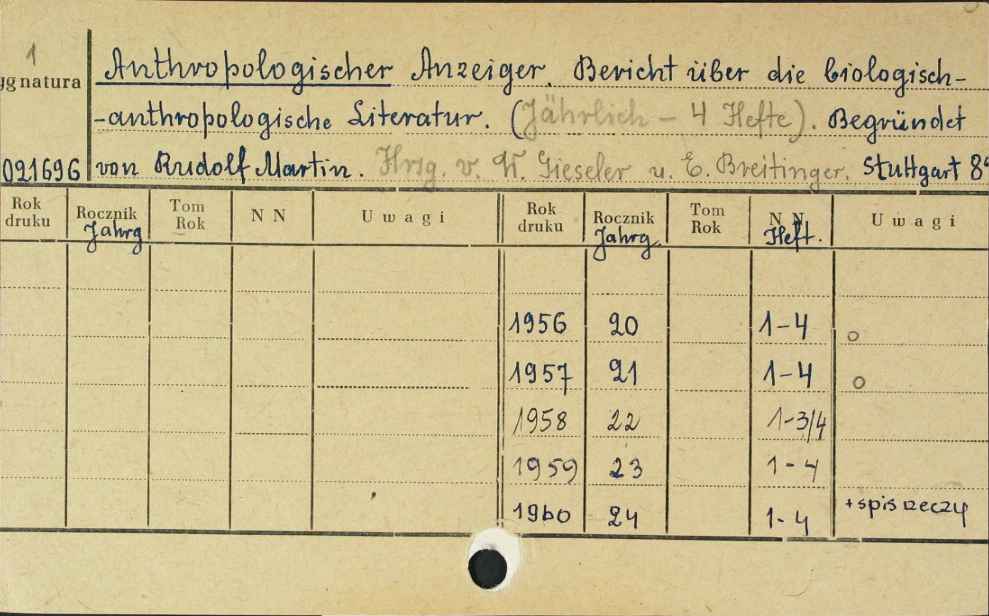 1
ygnatura
Anthropologischer Anzeiger. Bericht über die biologisch-
-anthropologische Literatur. (Jährlich – 4 Hefte). Begründet
091696 von Rudolf Martin. Hrsg. v. W. Gieseler u. E. Breitinger. Stuttgart 8°
Rok druku Rocznik Jahrg Tom Rok NN Uwagi Rok druku Rocznik Jahrg. Tom Rok NN Heft. Uwagi
1956 20 1-4 o
1957 21 1-4 o
1958 22 1-3/4
1959 23 1-4
1960 24 1-4 +spis rzeczy